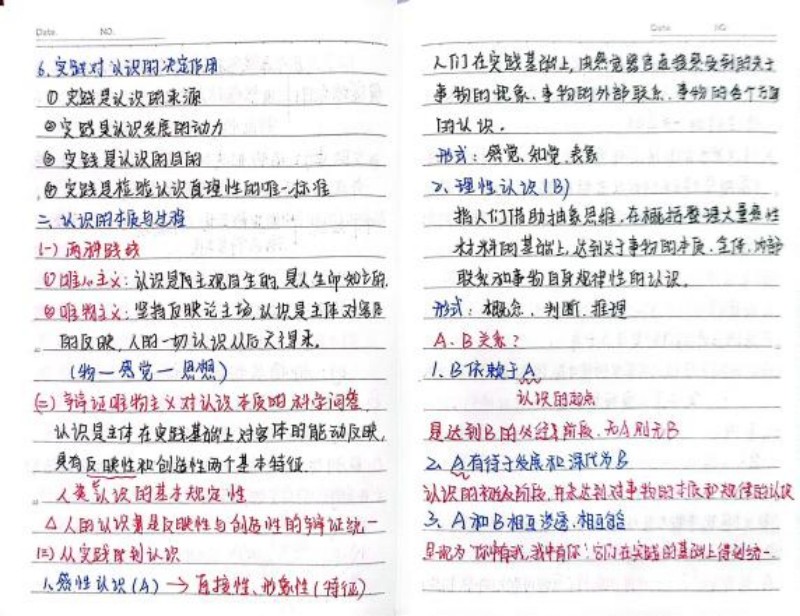 Date. NO.
6.实践对认识的决定作用
① 实践是认识的来源
② 实践是认识发展的动力
③ 实践是认识的目的
④ 实践是检验认识真理性的唯一标准
二、认识的本质与过程
(一) 两种路线
①唯心主义:认识是主观自生的,是人生即知的.
②唯物主义:坚持反映论立场,认识是主体对客体
的反映,人的一切认识从后天得来.
(物—感觉—思想)
(二) 辩证唯物主义对认识本质的科学回答.
认识是主体在实践基础上对客体的能动反映,
具有反映性和创造性两个基本特征.
人类认识的基本规定性
△ 人的认识是反映性与创造性的辩证统一
(三) 从实践到认识
1.感性认识(A) → 直接性、形象性(特征)
Date NO.
人们在实践基础上,由感觉器官直接感受到的关于
事物的现象、事物的外部联系、事物的各个方面
的认识.
形式:感觉、知觉、表象
2、理性认识(B)
指人们借助抽象思维,在概括整理大量感性
材料的基础上,达到关于事物的本质、全体、内部
联系和事物自身规律性的认识.
形式:概念、判断、推理
A、B关系?
1、B依赖于A
认识的起点
是达到B的必经阶段,无A则无B
2、A有待于发展和深化为B
认识的初级阶段,并未达到对事物的本质和规律的认识
3、A和B相互渗透、相互包含
表现为"你中有我,我中有你".它们在实践的基础上得到统一.